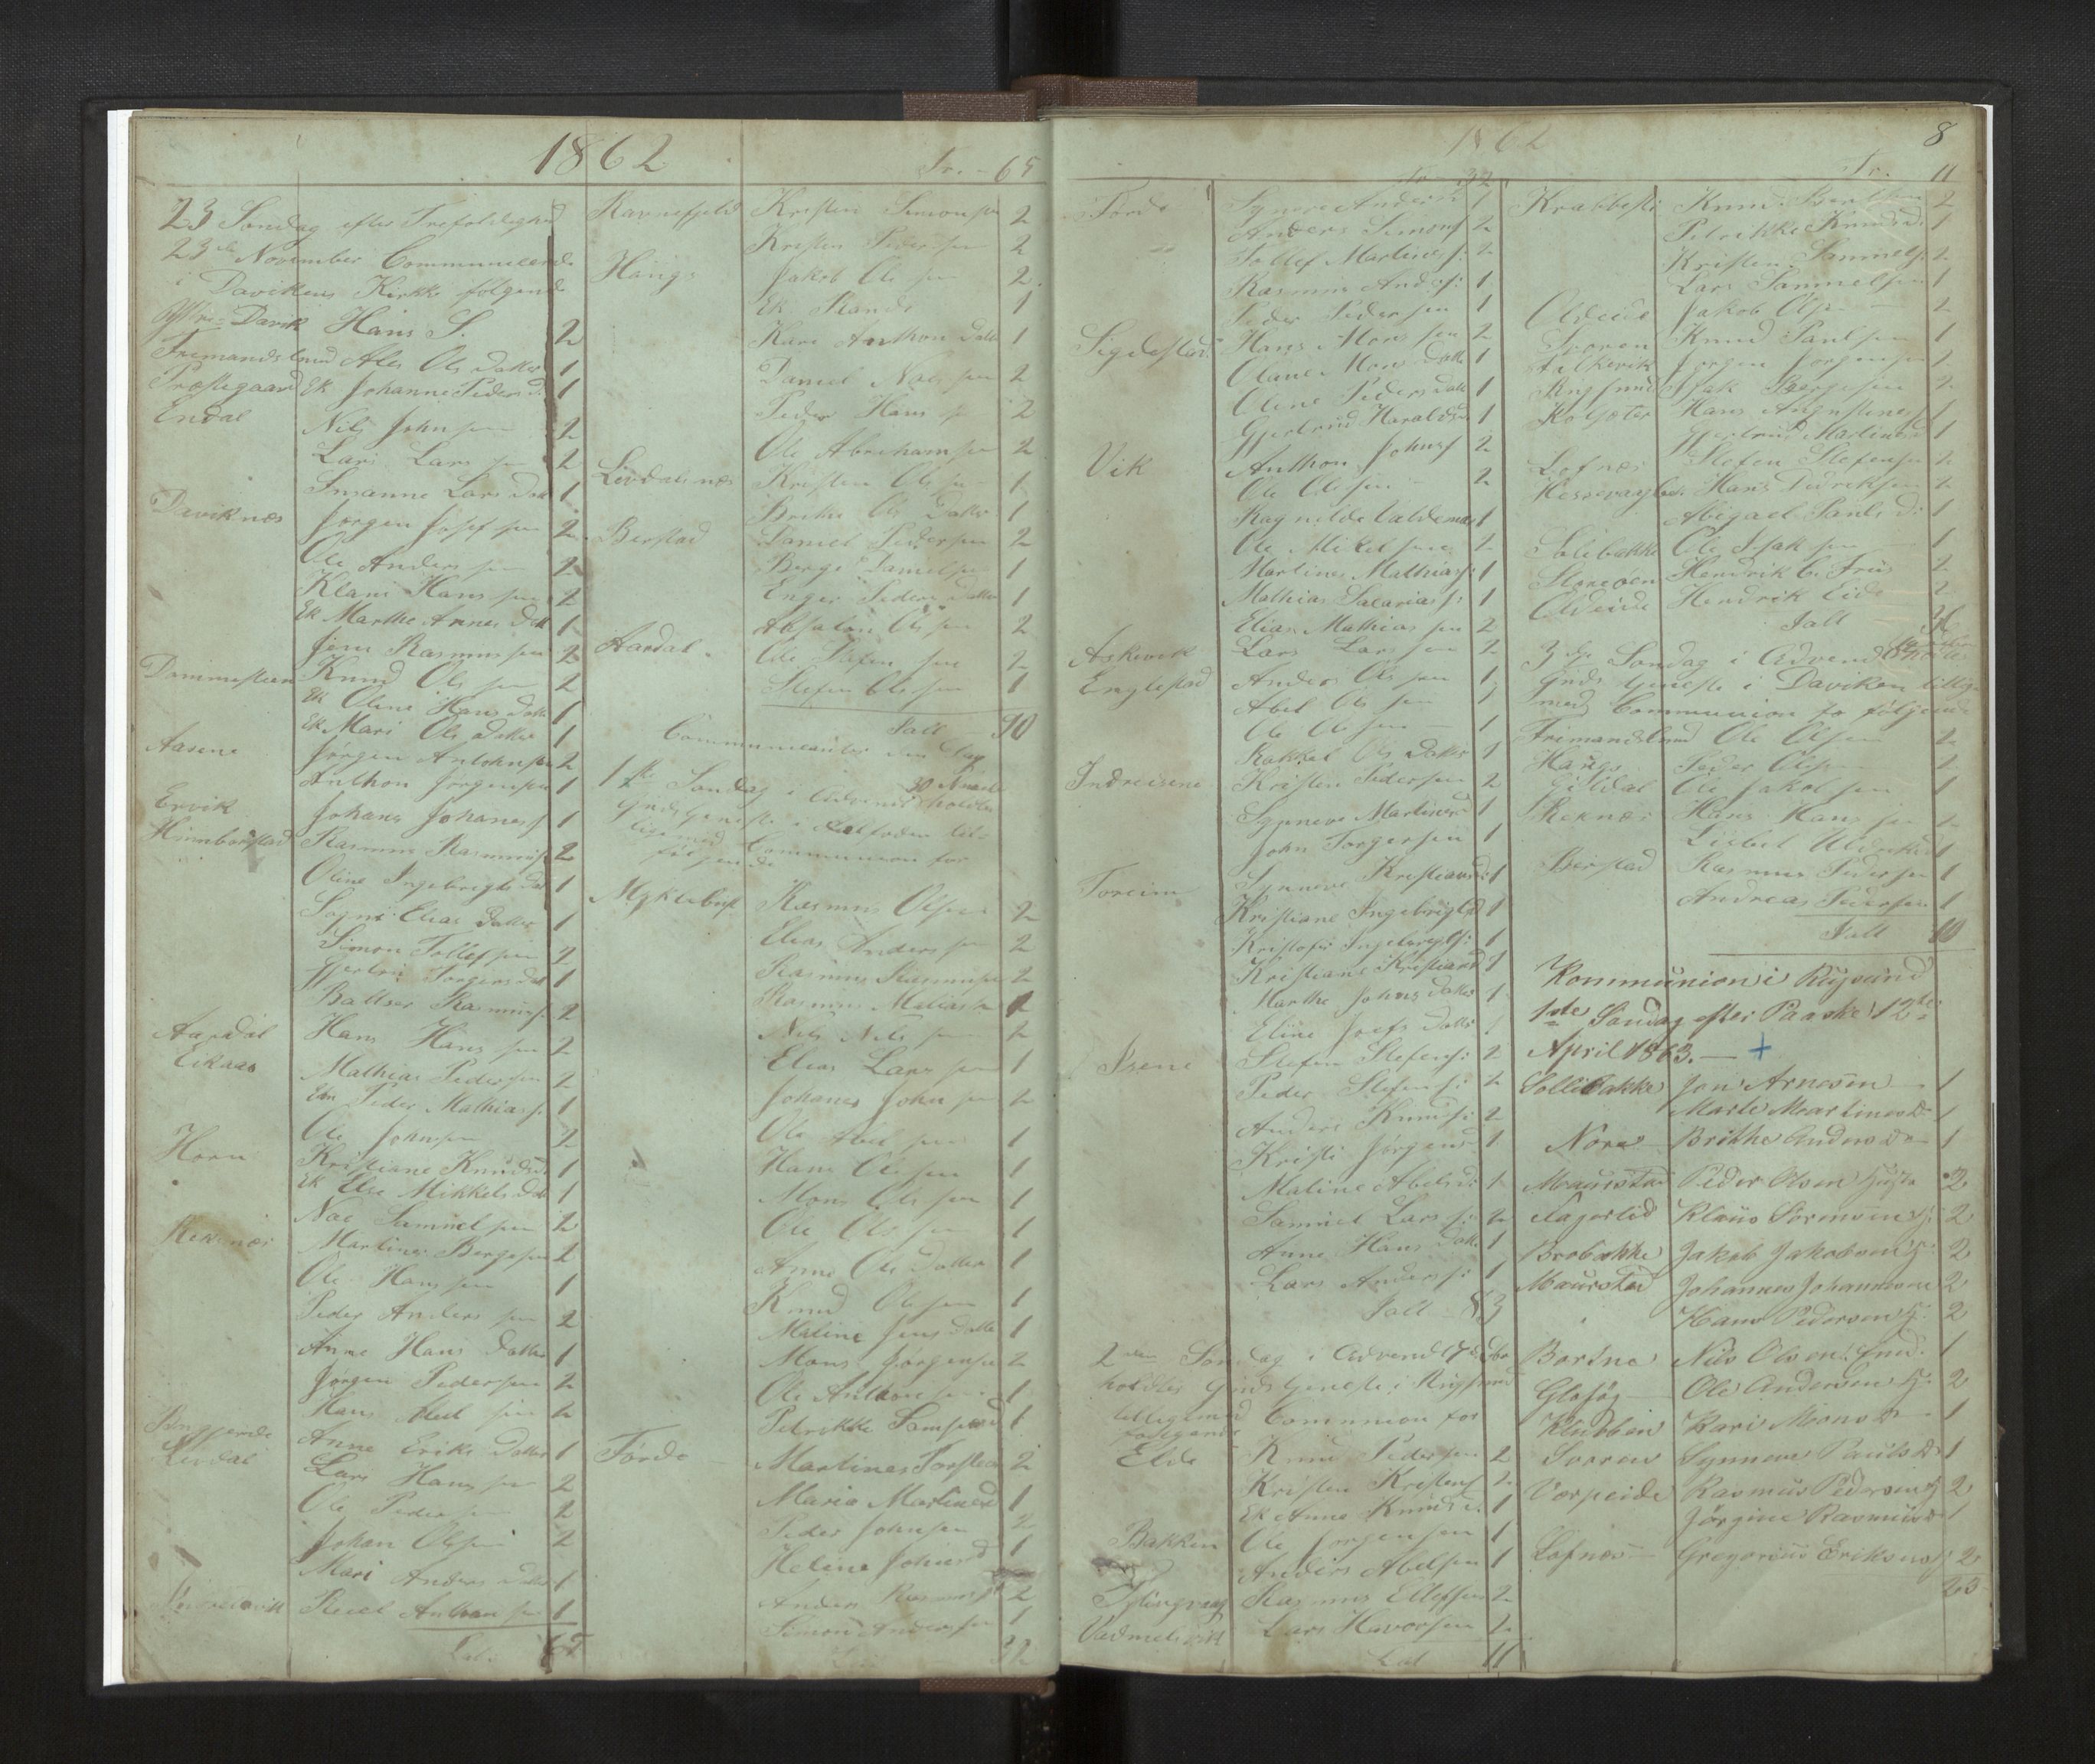 1862
Tr. - 65
23 Søndag efter Trefoldighed
23de November Communicerede
i Davikens Kirke følgende
Yttre Davik Hans S. 2
Fremandslund Ales Ols Datter 1
Præstegaard Ek Johanne Peders d 1
Endal Nils Johnsen 2
Lars Larsen 2
Susanne Lars Dat 1
Daviknæs Jørgen Josefsen 2
Ole Andersen 2
Klaus Hansen 2
Ek Marthe Annes Dat 1
Jens Rasmussen 2
Dommesteen Knud Olsen 2
Ek Oline Hans Datter 1
Ek Mari Ols Datter 1
Aasene Jørgen Antonsen 2
Anthon Jørgensen 1
Ervik Johans Johanes 1
Humborstad Rasmus Rasmuss 2
Oline Ingebrigts Dat 1
Sogni Elias Datter 1
Simon Tollefsen 2
Torgersdat 1
Baltser Rasmus 2
Aardal Hans Hansen 2
Eikaas Mathias Pedersen 2
Ekn Peder Mathias 1
Ole Johnsen 2
Horn Kristiane Knudsd 1
Ek Else Mikkels Dat 1
Nae Samuelsen 2
Reksnæs Martinus Børgesen 2
Ole Hansen 1
Peder Andersen 2
Anne Hans Datter 1
Jørgen Pedersen 2
Hans Abelsen 2
Anne Eriks Datter 1
Levdal Lars Hansen 2
Ole Pedersen 2
Johan Olsen 2
Mari Anders Datter 1
Anthonsen 1
Lat. 65
Ravnefjeld Kristen Simonsen 2
Kristen Pedersen 2
Haugs Jakob Olsen 2
Ek Rande 1
Kari Anthon Datter 1
Daniel Nilssen 2
Peder Hansen 2
Ole Abrahamsen 2
Levdalsnæs Kristen Olsen 1
Brithe Ols Datter 1
Berstad Daniel Pedersen 2
Børge Danielsen 1
Enger Peders Datter 1
Absalon Olsen 2
Aardal Ole Stefensen 2
Stefen Olesen 1
Ialt 90
Communicanter den Dag
1ste Søndag i Advendt 30 Novbr holdtes
Gudstjeneste i Aalfoden til-
ligemed Communion for
følgende
Myklebust Rasmus Olsen 2
Elias Andersen 2
Rasmus Rasmussen 2
Rasmus Matias 1
Nils Nilsen 2
Elias Larsen 1
Johanes Johnsen 2
Ole Abelsen 1
Hans Olesen 1
Mons Olsen 1
Ole Olsen 1
Anne Ols Datter 1
Knud Olesen 1
Maline Jens Datter 1
Mons Jørgensen 2
Ole Anthonsen 1
Petrikke Samsons d 1
Førde Martinus Torsten 2
Maria Martines d 1
Peder Johnsen 2
Helene Johns d 1
Anders Rasmus 2
Simon Andersen 1
32
1862
8
Tr. 32
Førde Synneve Anders d 1
Anders Simons 2
Tollef Martinus s: 2
Rasmus Anders s: 1
Peder Pedersen 1
Sigdestad Hans Monsen 2
Oliane Mons Datt 1
Oline Peders Datt 1
Gjertrud Haralds d 1
Vik Anthon Johns 2
Ole Olesen 2
Ragnilde Valdemar 1
Ole Mikelsen 2
Martinus Mathias s: 1
Mathias Salarias s: 1
Elias Mathiassen 2
Askevik Lars Larsen 2
Emglestad Anders Olsen 1
Abel Olsen 1
Ole Olesen 1
Rakkel Ols Datter 1
Indreisene Kristen Pedersen 2
Synneve Martines d 1
John Torgersen 1
Synneve Kristians d: 1
Toreim Kristiane Ingebrigtsd 1
Kristofer Ingebrigts: 1
Kristiane Kristians d 1
Marthe Johns Datter 1
Eline Josefs Datt 1
Isene Stefen Stefens: 2
Peder Stefens: 2
Anders Knuds: 2
Kristi Jørgens d 1
Maline Abels d: 1
Samuel Lars s: 2
Anne Hans Datt 1
Lars Anders s: 1
Ialt 83
2den Søndag i Advend 7 Dbr
holdtes Gudstjeneste i Rugsund
tilligemed Communion for
følgende
Elde Knud Pedersen 2
Kristen Kristens 2
Ek Anne Knuds d. 1
Bakken Ole Jorgensen 1
Anders Abelsen 1
Rasmus Ellefsen 2
Vedmelsvik Lars Havorsen 2
Lat 11
Tr. 11
Krabbesti Knud Berthsen 2
Petrikke Knuds d: 1
Kristen Samuels: 2
Lars Samuelsen 1
Oldeide Jakob Ols 2
Tvoren Knud Paulsen 1
Jørgen Jørgensen 2
Rugsund Isak Børgesen 2
Kolsæter Hans Augustinus 1
Gjertrud Martines d 1
Lefnæs Stefen Stefensen 2
Hessevaagbø. Hans Didriksen 2
Abigael Pauls d: 1
Solibakke Ole Isaksen 1
Storeøen Hendrik C. Friis 2
Oldeide Hendrik Eide 2
Ialt 36
3die Søndag i Advend 14 Decbr holdtes
Guds tjeneste i Daviken tillige
med Communion fo følgende
Fremandslund Ole Olsen 2
Haugs Peder Olsen 2
Gildal Ole Jakobsen 1
Reknæs Hans Hansen 2
Lisbet 1
Berstad Rasmus Pedersen 1
Andreas Pedersen 1
Ialt 10
Kommunion i Rugsund
1ste Søndag efter Paaske 12te
April 1863. — +
Sollibakke Jon Arnesen 1
Marte Martines D 1
Nore Brithe Anders D 1
Maurstad Peder Olsen Husm 2
Nagerlid Klaus Sørensen 2
Brobakke Jakob Jakobsen G: 2
Maurstad Johannes Johannesen 2
Hans Pedersen G. 2
Bortne Nils Olsen Emd. 1
Glaføy Ole Andersen G: 2
Klubben Kari Mons D 1
Torren Synneve Pauls D 1
Vorpeide Rasmus Pedersen G 2
Jørgine Rasmus d 1
Lefnæs Gregorius Eriksen 2
23